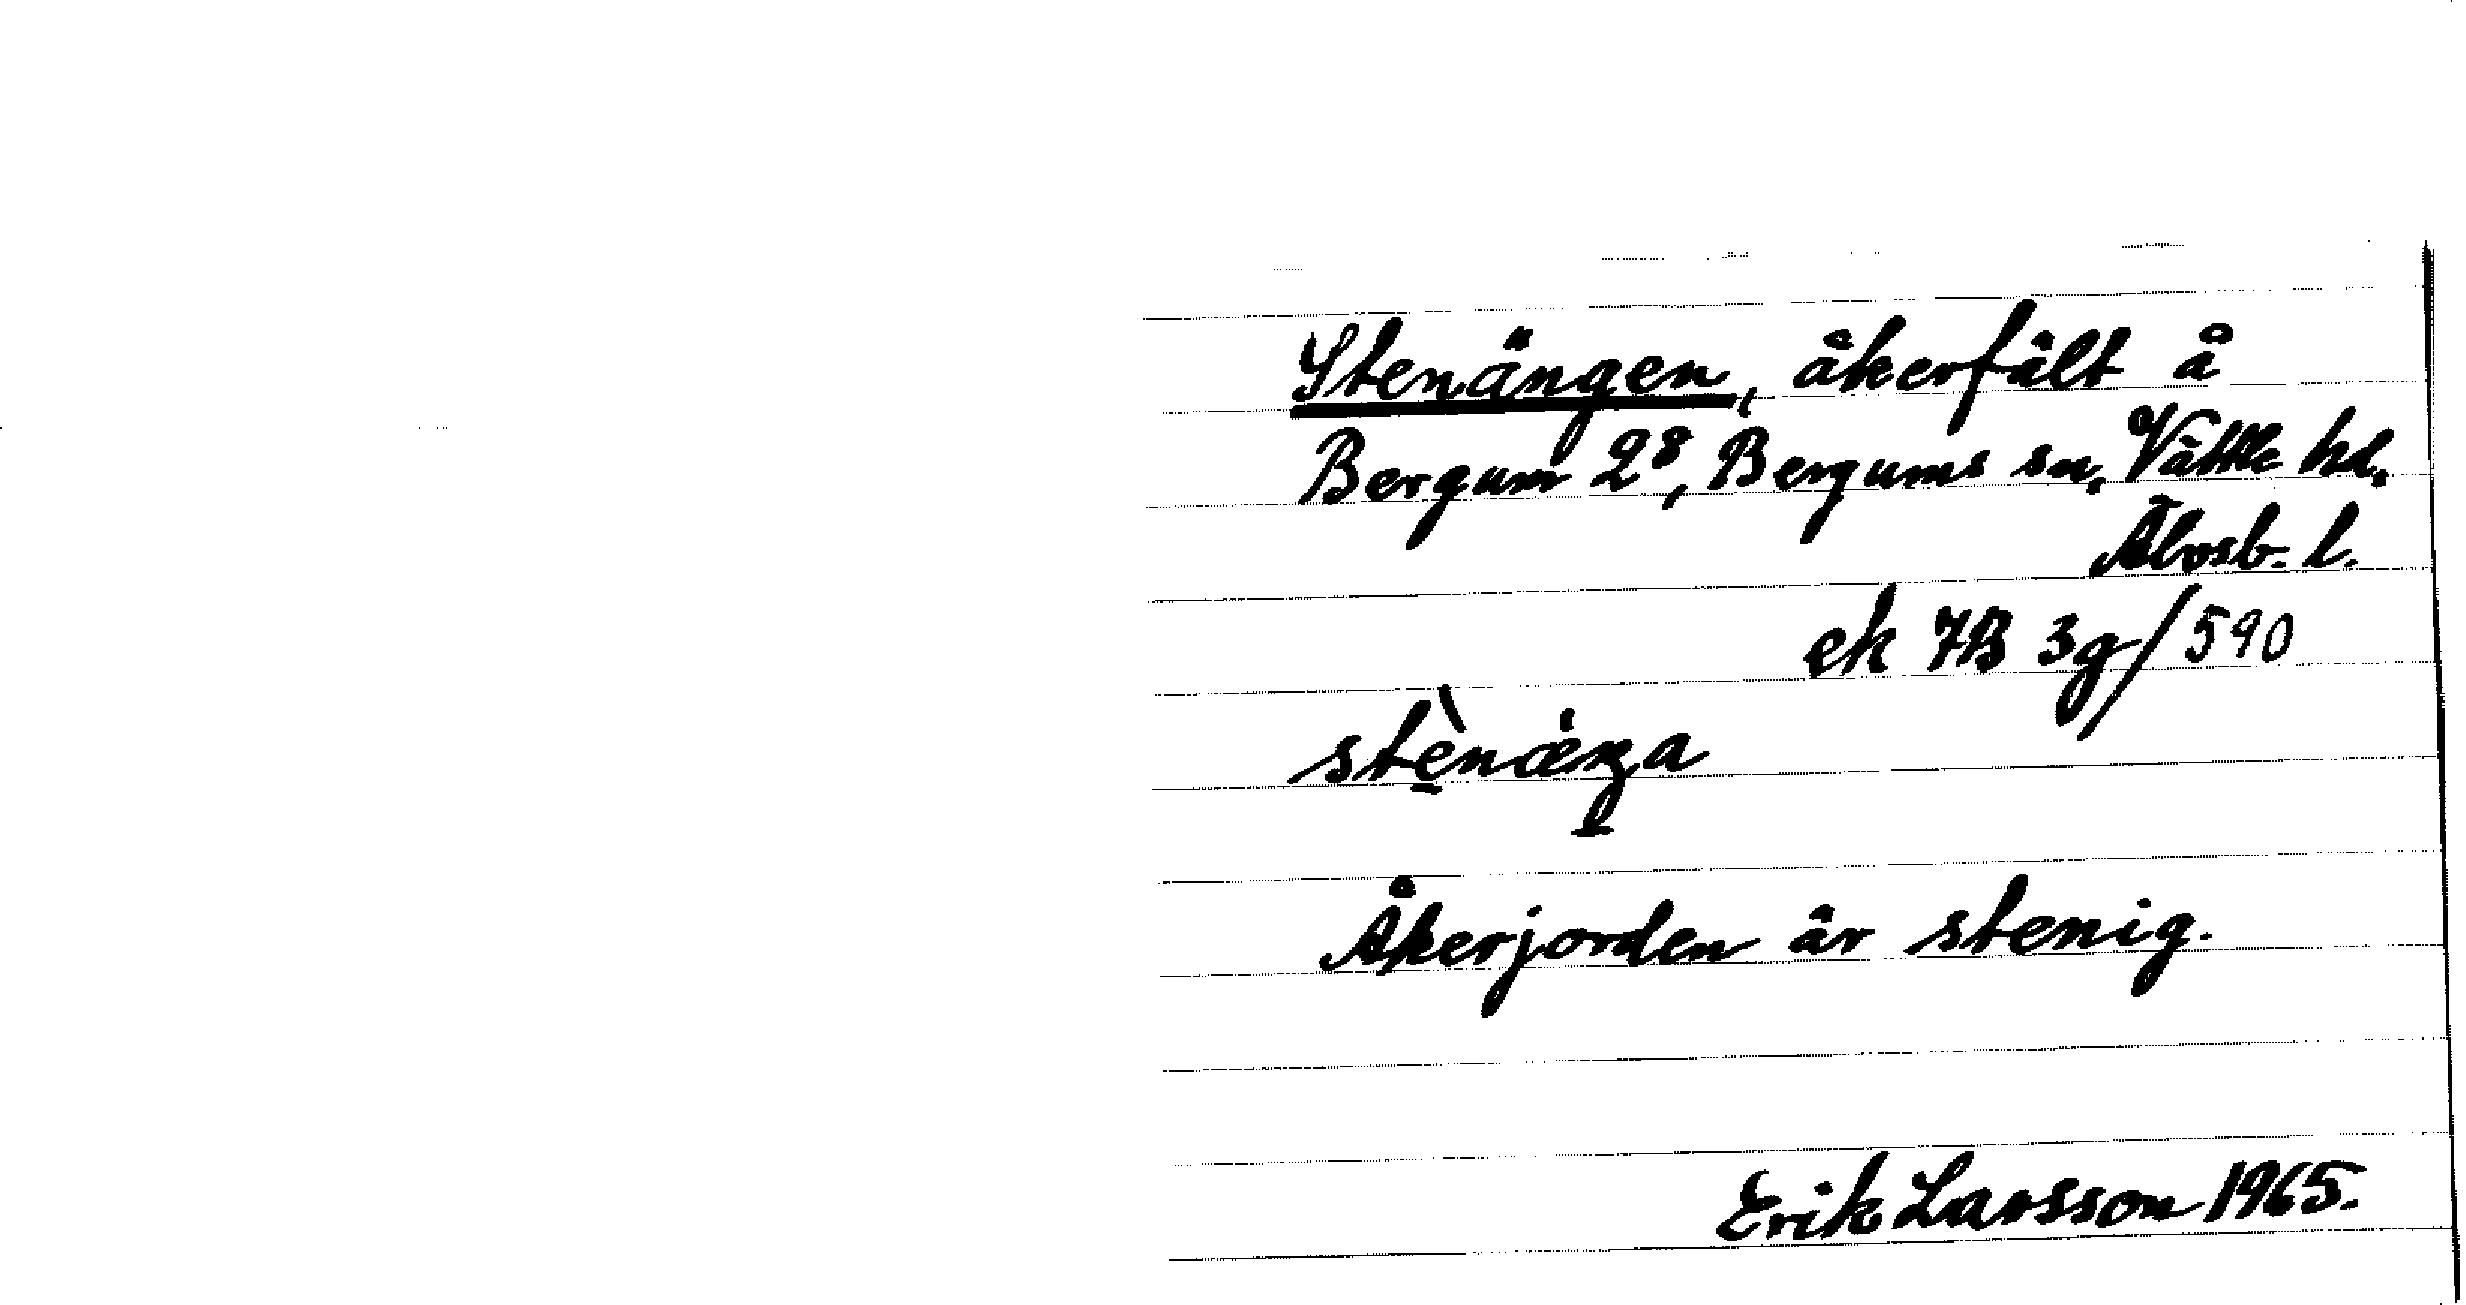 Stenängen, åkerfält å
Bergum 2⁸, Bergums sn, Vättle hd,
Älvsb. l.
ek 7B 3g/590
Åkerjorden är stenig.
Erik Larsson 1965.